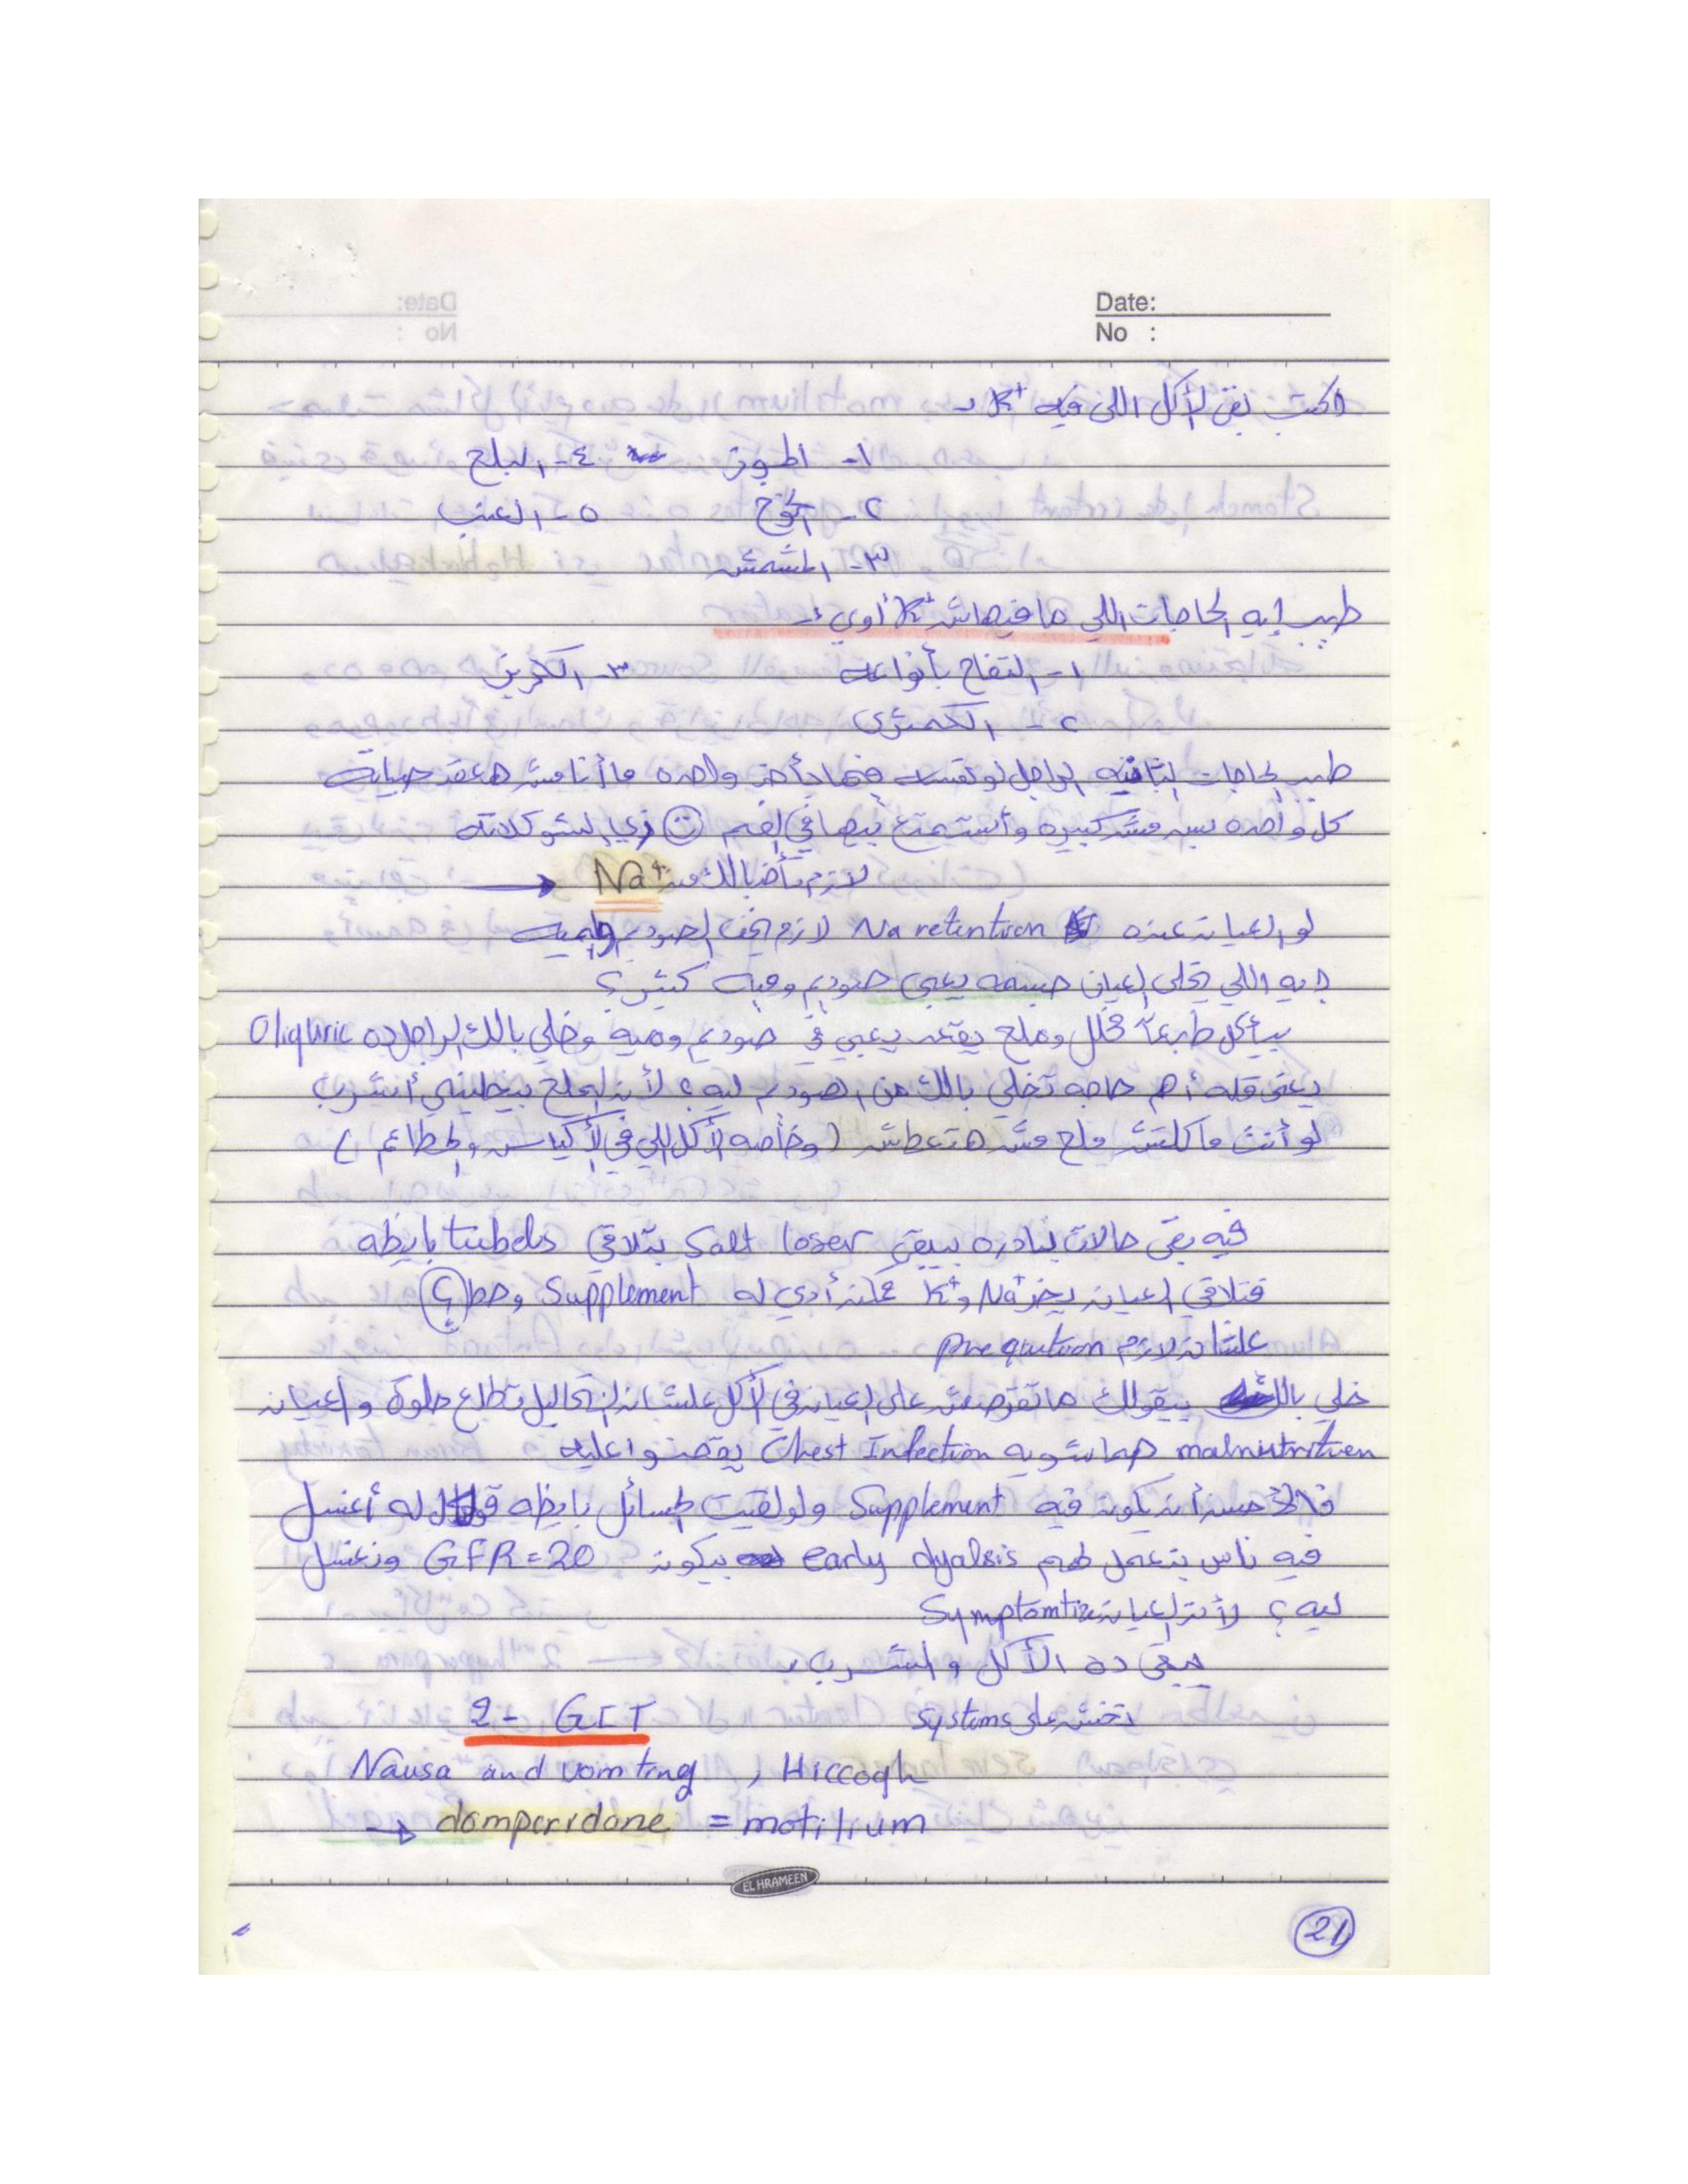 Date:
No :
اكتب بقى الأكل اللي فيه K+ :-
١- الموز ٤- البلح
٢- الخوخ ٥- العنب
٣- المشمش
طيب إيه الحاجات اللي ما فيهاش K+ أوي :-
١- التفاح بأنواعه ٣- الكريز
٢- الكمثرى
طيب الحاجات التانيه الراجل لو نفسه فيها يأخد واحده ما أنا مش هعقد حياته
كل واحده بس مش كبيره وأستمتع بيها في الفم ☺ زي الشوكلاته
لازم تأخد بالك من Na+ →
لو العيان عنده Na retention لازم اخف الصوديم والميه
إيه اللي يخلي العيان جسمه يعبي صوديم وميه كتير؟
بيأكل طبعاً مخلل وملح يقعد يعبي في صوديم وميه وخلي بالك الراجل ده Oliguric
يعني قله أهم حاجه تخلي بالك من الصوديم ليه؟ لأن الملح بيخليني أشرب
لو أنت ما كلتش ملح مش هتعطش (وخاصه الأكل اللي في الأكياس والمطاعم)
فيه بقى حالات نادره بيبقى Salt loser بتلاقي tubels بايظه
فتلاقي العيان يخر Na+ و K+ ممكن أدي له Supplement وحط (؟)
علشان لازم prequition
خلي بالك بيقولك ماتقرصش على العيان في الأكل علشان التحاليل تطلع حلوة والعيان
malnutrition Chest Infection يقضوا عليه
فالأحسن أن يكون فيه Supplement ولو لقيت المسائل بايظه قول له أغسل
فيه ناس بنعمل لهم early dyalsis بيكون GFR = 20 ونغسل
ليه؟ لأن العيان Symptomtic
يبقى ده الأكل والشرب :
نخش على Systems
2- GIT
Nausa and vomting , Hiccogh
→ domperidone = motilium
EL HRAMEEN
21